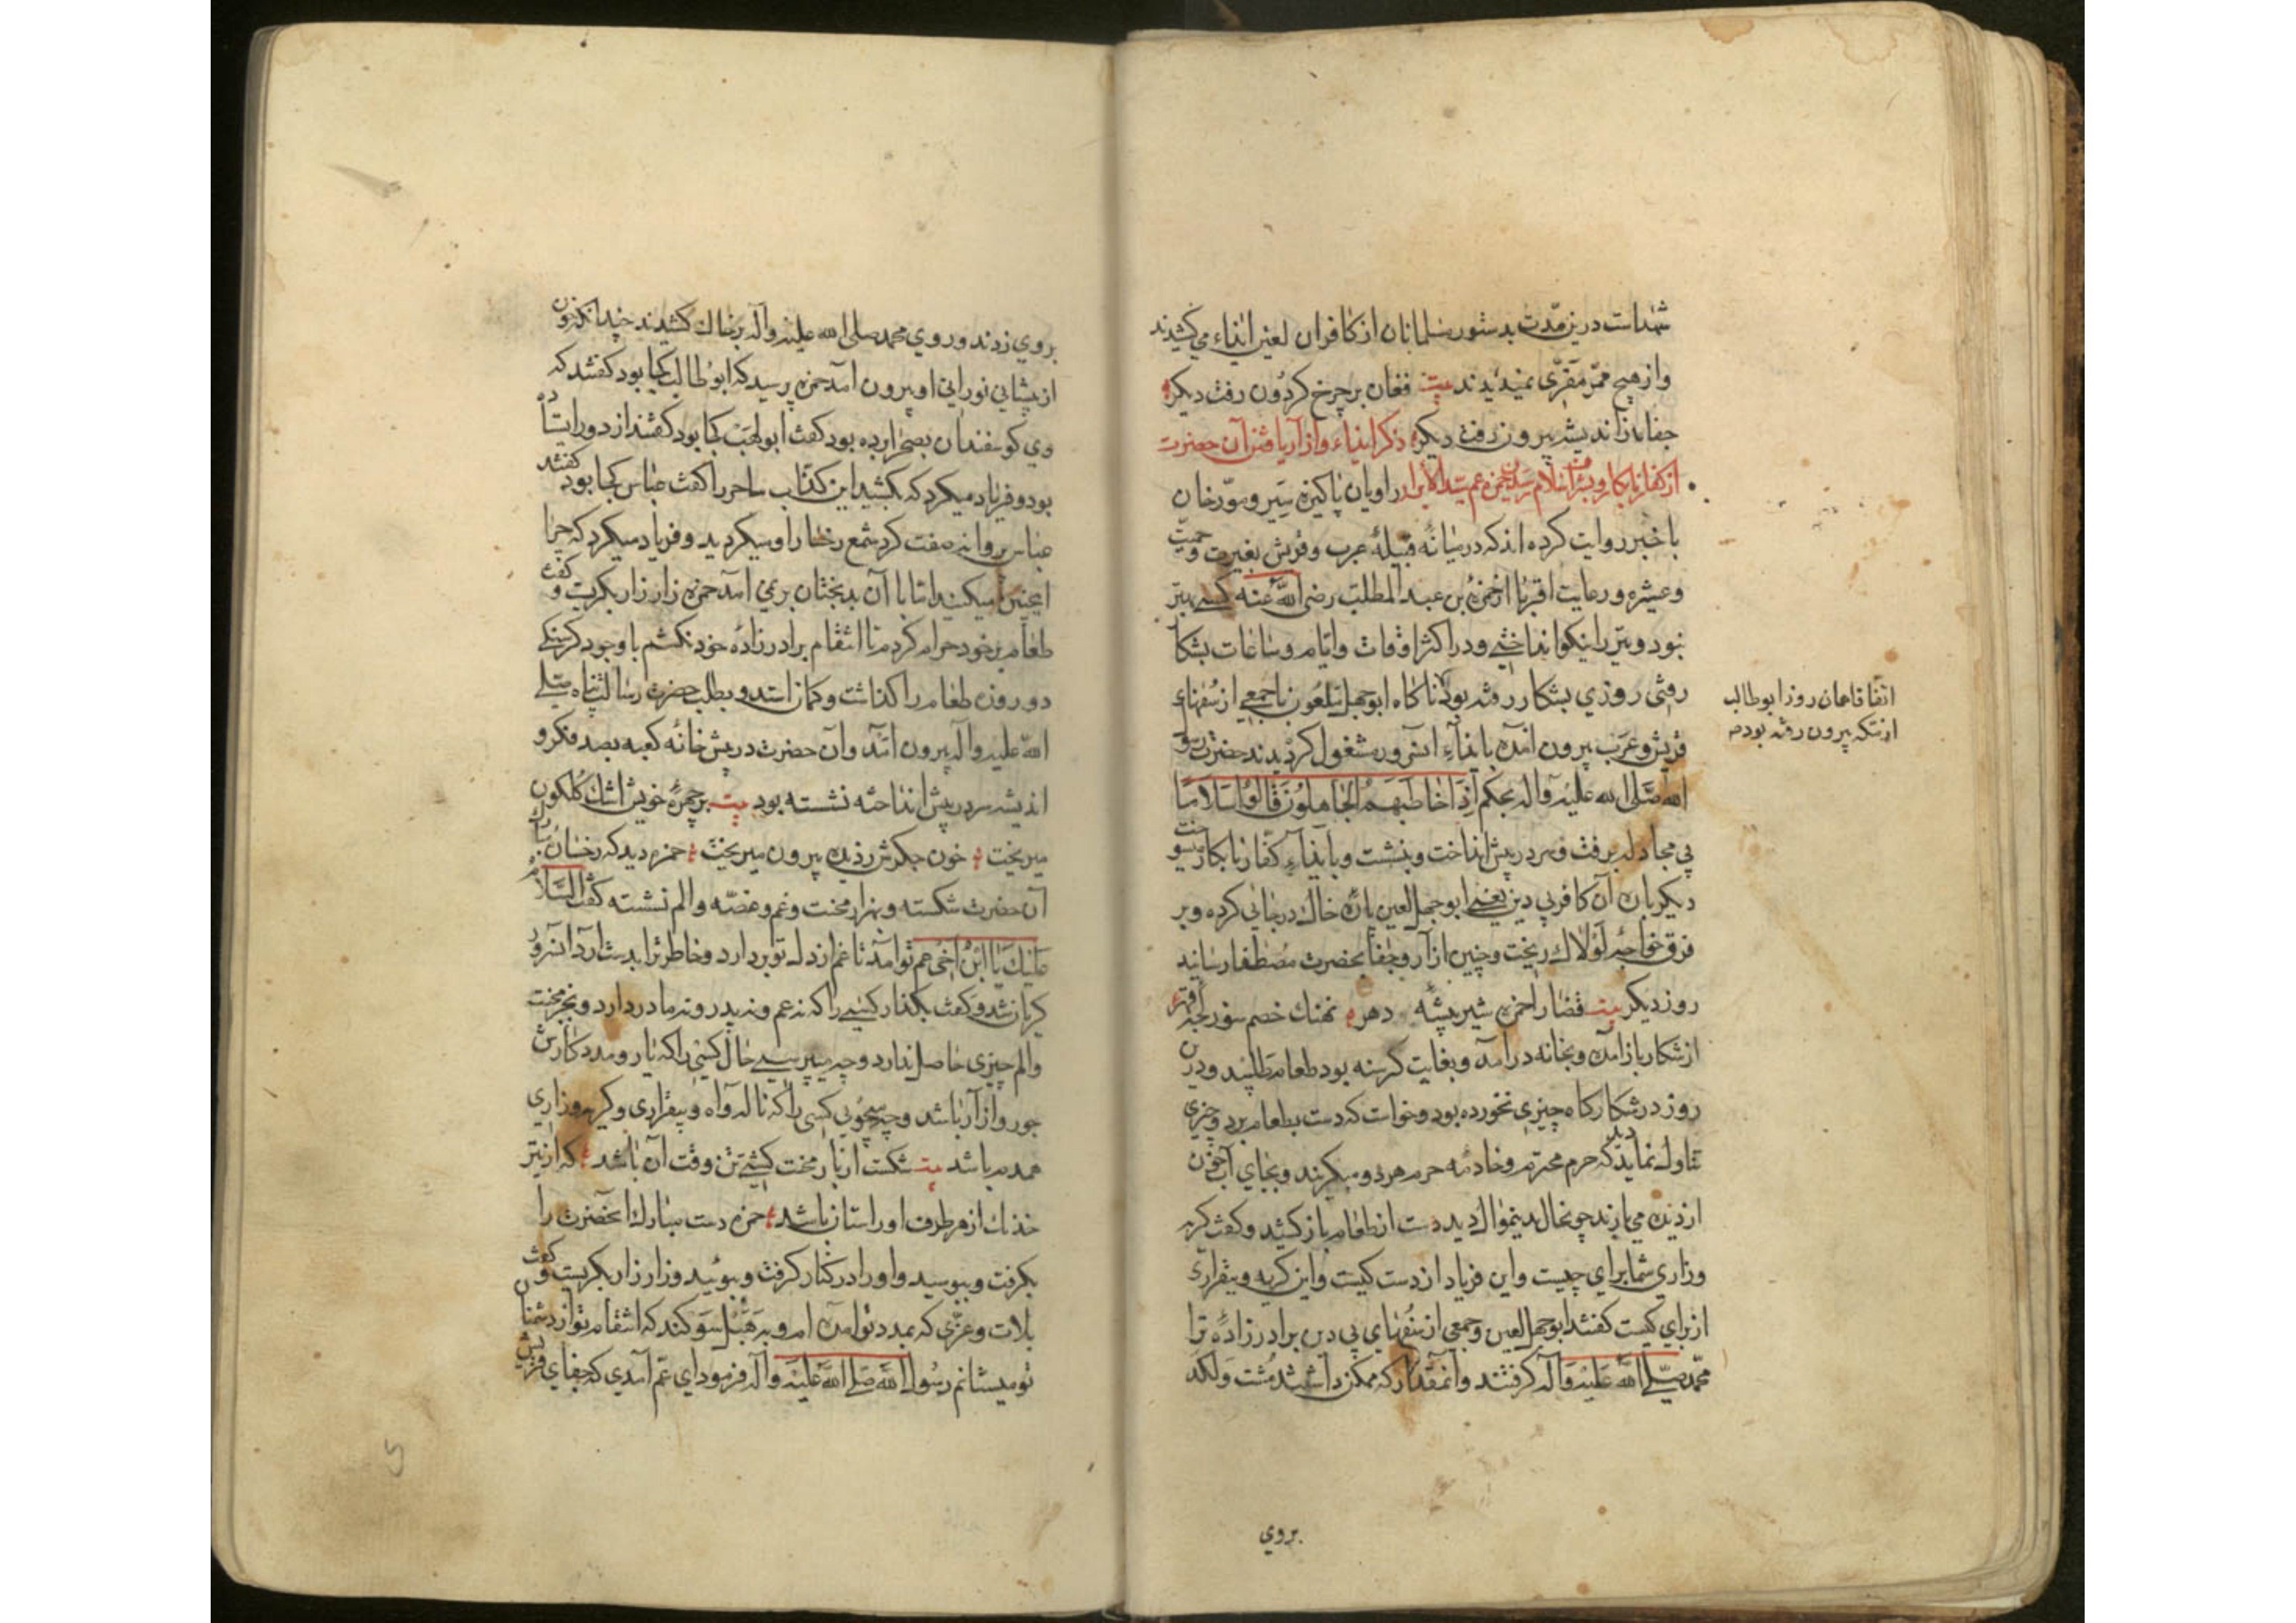 شماست درین مدّت بدستور مسلمانان از کافران لعین ایذاء می کشیدند
واز هیچ ممرّ مقرّی نمیدیدند بیت فغان بر چرخ کردون رفت دیکر
جفا بد زاندیشه بیرون رفت دیکر ذکر ایذاء وازار یافتن آن حضرت
از کفار نابکار وبشرف اسلام رسیدن حمزه عم سید الابرار راویان پاکیزه سیر ومورّخان
با خبر روایت کرده اند که در میانهٔ قبیلهٔ عرب وقریش بغیرت وحمیّت
وعشیره ورعایت اقربا از حمزه بن عبد المطلب رضی الله عنه کسی بهتر
نبود وتیر را نیکو انداختی ودر اکثر اوقات وایّام وساعات بشکا
رفتی روزی بشکار رفته بود ناکاه ابو جهل ملعون با جمعی از سفهاء
قریش وعرب بیرون آمده بایذآء آنسرور مشغول کردیدند حضرت رسول
الله صلی الله علیه وآله بحکم اذا خاطبهم الجاهلون قالوا سلاما
پی مجادله برفت وسر در پیش انداخت وبنشت وبایذآء کفار نابکار
دیکر باره آن کافر بی دین یعنی ابو جهل لعین پارهٔ خاک در جائی کرده وبر
فرق خواجهٔ لولاک ریخت وچنین ازار وجفا بحضرت مصطفا رسانید
روز دیکر بیت قضا را حمزه شیر بیشهٔ دهر نهنک خصم سوز لجّهٔ قهر
از شکار باز آمده وبخانه در آمد وبغایت کرسنه بود طعام طلبید ودرین
روز در شکار کاه چیزی نخورده بود وخواست که دست بطعام برد وچیزی
تناول نماید دید که حرم محترم وخادمه حرم هر دو میکریند وبجای آب خون
از دیده می بارند چون حال بدینمنوال دید دست از طعام باز کشید وکفت کریه
وزاری شما برای چیست واین فریاد از دست کیست واین کریه وبیقراری
از برای کیست کفتند ابو جهل لعین وجمعی از سفهای بی دین برادر زادهٔ ترا
محمد صلی الله علیه وآله کرفتند وآنمقدار که ممکن داشتند مشت ولکد
اتفاقا همان روز ابو طالب
از مکه بیرون رفته بود
بروی
بروی زدند وروی محمد صلی الله علیه وآله بر خاک کشیدند چندانکه خون
از پیشانی نورانی او بیرون آمد حمزه پرسید که ابو طالب کجا بود کفتند که
وی کوسفندان بصحرا برده بود کفت ابو لهب کجا بود کفتند از دور ایستاده
بود وفریاد میکرد که بکشید این کذّاب ساحر را کفت عباس کجا بود کفتند
عباس پروانه صفت کرد شمع رخسار او میکردید وفریاد میکرد که چرا
اینچنین میکنید امّا با آن بدبختان بر نمی آمد حمزه زار زار بکریست وکفت
طعام بر خود حرام کردم تا انتقام برادر زادهٔ خود نکشم با وجود کرسنکی
دو روزه طعام را کذاشت وکمان استد وبطلب حضرت رسالت پناه صلی
الله علیه وآله بیرون آمد وآن حضرت در پیش خانهٔ کعبه بصد فکر و
اندیشه سر در پیش انداخته نشسته بود بیت بر چهرهٔ خویش اشک کلکون
میریخت خون جکرش زدیده بیرون میریخت حمزه دید که رخسار مبارک
آن حضرت شکسته وبهزار محنت وغم وغصّه والم نشسته کفت السلام
علیک یا ابن اخی عم تو آمد تا غم از دل تو بردارد وخاطر ترا بدست ارد آنسرور
کریان شد وکفت بکذار کسی را که نه عم ونه پدر ونه مادر دارد وبجز محنت
والم چیزی حاصل ندارد وچه میپرسی حال کسی را که یار ومدد کارش
جور وازار باشد وچه میجوئی کسی را که ناله وآه وبیقراری وکریه وزاری
همدم باشد بیت شکست از بار محنت کشتی تن وقت آن باشد که از تیر
خدنک از هر طرف اورا ستان باشد حمزه دست مبارک آنحضرت را
بکرفت وببوسید واورا در کنار کرفت وببوئید وزار زار بکریست وکفت
بلات وعزّی که بمدد تو آمده ام وبه هبل سوکند که انتقام تو از دشمنان
تو میستانم رسول الله صلی الله علیه وآله فرمود ای عم آمدی که جفای قریش